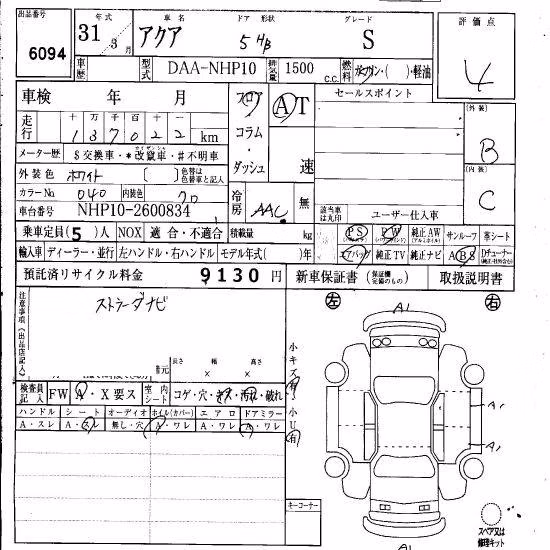 出品番号 6094
年式 31年 3月
車名 アクア
ドア 形状 5 HB
グレード S
評価点 4
車歴
型式 DAA-NHP10
排気量 1500 C.C.
燃料 ガソリン・( )・軽油
車検 年 月
フロア・コラム・ダッシュ
AT 速
セールスポイント
走行 十 万 千 百 十 一
137022 km
外装 B
内装 C
メーター歴 $ 交換車・*改竄車・# 不明車
外装色 ホワイト
色替は色替車と記入
カラーNo 040 内装色 20
冷房 AAC 無
車台番号 NHP10-2600834
該当車は丸印
ユーザー仕入車
乗車定員(5)人 NOX 適合・不適合 積載量 kg
PS PW 純正AW サンルーフ 革シート
輸入車 ディーラー・並行 左ハンドル・右ハンドル モデル年式( )年
エアバッグ 純正TV 純正ナビ ABS Dチューナー
預託済リサイクル料金 9130 円
新車保証書 (保証欄完備のもの) 取扱説明書
注意事項(出品店記入)
ストラーダナビ
左 右
A1
長さ 幅 高さ
× ×
小キズ有
小U有
検査員記入 FW A・X要ス 室内シート コゲ・穴・キズ・汚れ・破れ
ハンドル シート オーディオ ホイル(カバー) エアロ ドアミラー
A・スレ A・スレ 無し・穴 A・ワレ A・ワレ A・ワレ
A1
A1
キーコーナー
スペア又は修理キット
A1